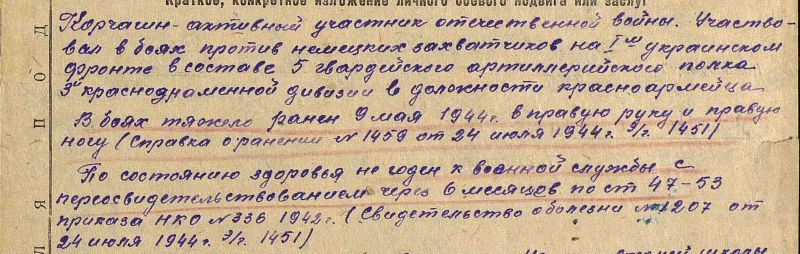 Краткое, конкретное изложение личного боевого подвига или заслуг
Корчагин - активный участник отечественной войны. Участво-
вал в боях против немецких захватчиков на I м украинском
фронте в составе 5 гвардейского артиллерийского полка
3й краснознаменной дивизии в должности красноармейца
В боях тяжело ранен 9 мая 1944 г. в правую руку и правую
ногу (Справка о ранении №1459 от 24 июля 1944 г. э/г. 1451)
По состоянию здоровья не годен к военной службы с
переосвидетельствованием через 6 месяцов по ст 47-53
приказа НКО №336 1942 г. (Свидетельство о болезни №1207 от
24 июля 1944 г. э/г. 1451)
П О Д
Л Я